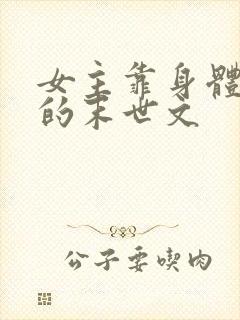 女主靠身體
的末世文
公子要喫肉